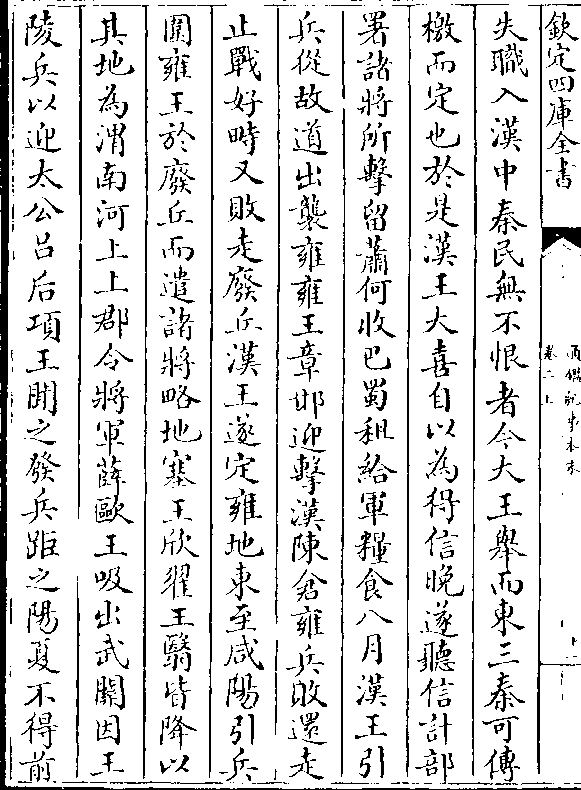 欽定四庫全書
通鑑紀事本末
卷二上
失職入漢中秦民無不恨者今大王舉而東三秦可傳
檄而定也於是漢王大喜自以為得信晚遂聽信計部
署諸將所擊留蕭何收巴蜀租給軍糧食八月漢王引
兵從故道出襲雍雍王章邯迎擊漢陳倉雍兵敗還走
止戰好畤又敗走廢丘漢王遂定雍地東至咸陽引兵
圍雍王於廢丘而遣諸將略地塞王欣翟王翳皆降以
其地為渭南河上上郡令將軍薛歐王吸出武關因王
陵兵以迎太公吕后項王聞之發兵距之陽夏不得前